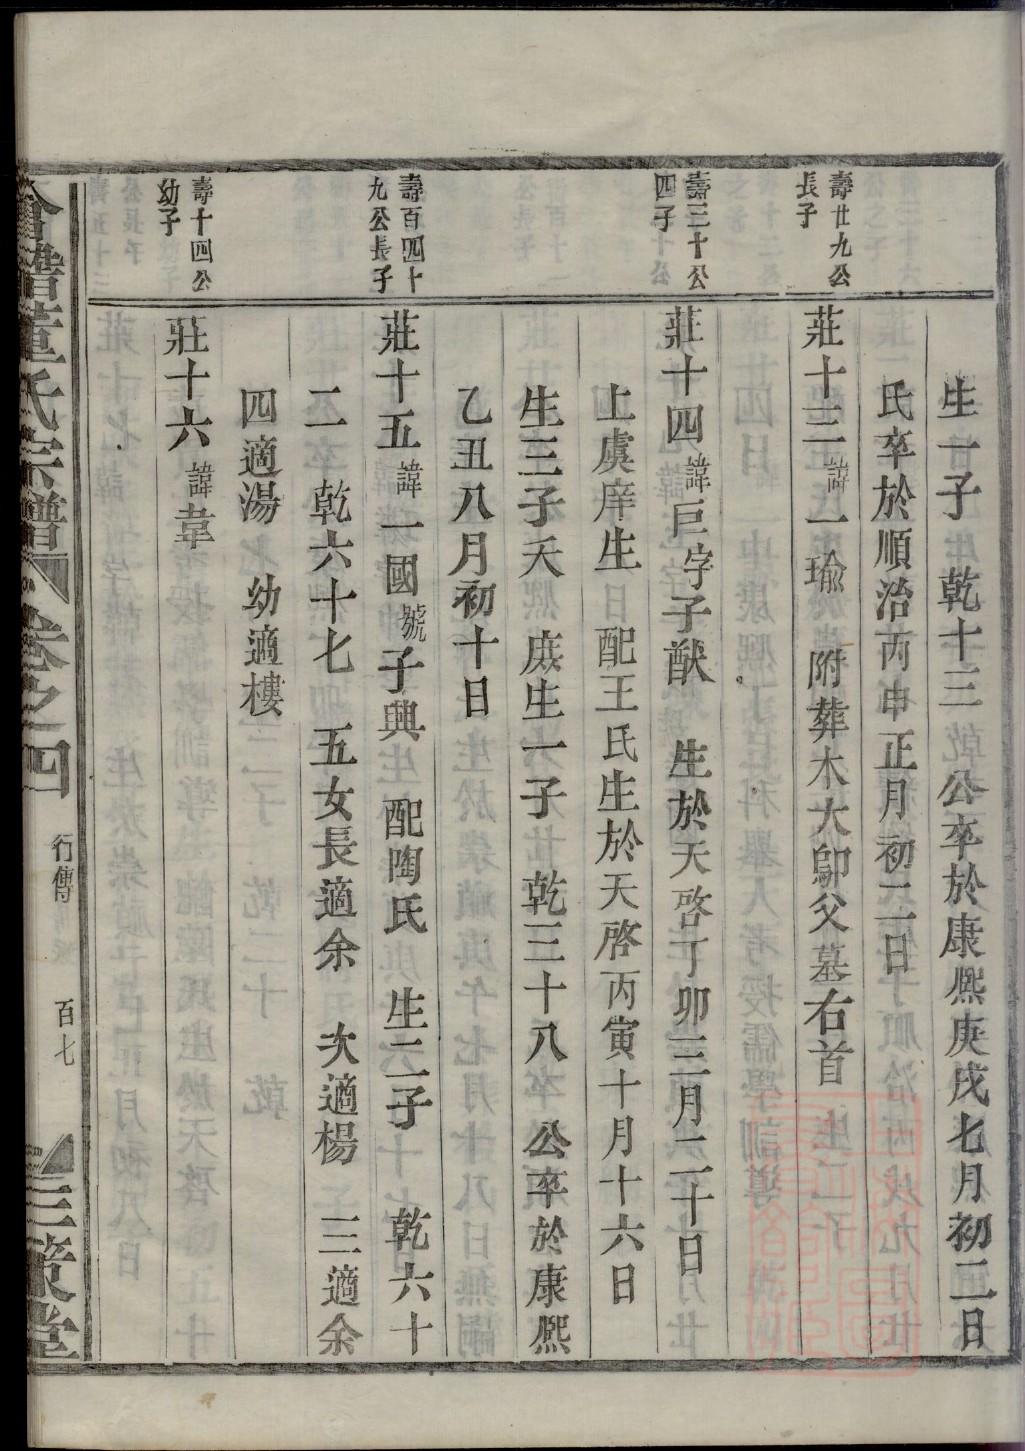 生一子　乾十三　公卒於康熙庚戌七月初二日
氏卒於順治丙申正月初二日
壽廿九公
長子
莊十三諱一瑜　附葬木大鄔父墓右首
壽三十公
四子
莊十四諱巨字子猷　生於天啓丁卯三月二十日
上虞庠生　配王氏生於天啓丙寅十月十六日
生三子天　庶生一子　乾三十八　公卒於康熙
乙丑八月初十日
壽百四十
九公長子
莊十五諱一國號子興　配陶氏　生二子　乾六十
二　乾六十七　五女長適余　次適楊　三適余
四適湯　幼適樓
壽十四公
幼子
莊十六諱韋
會稽董氏宗譜　卷之四　行傳　百七　三策堂